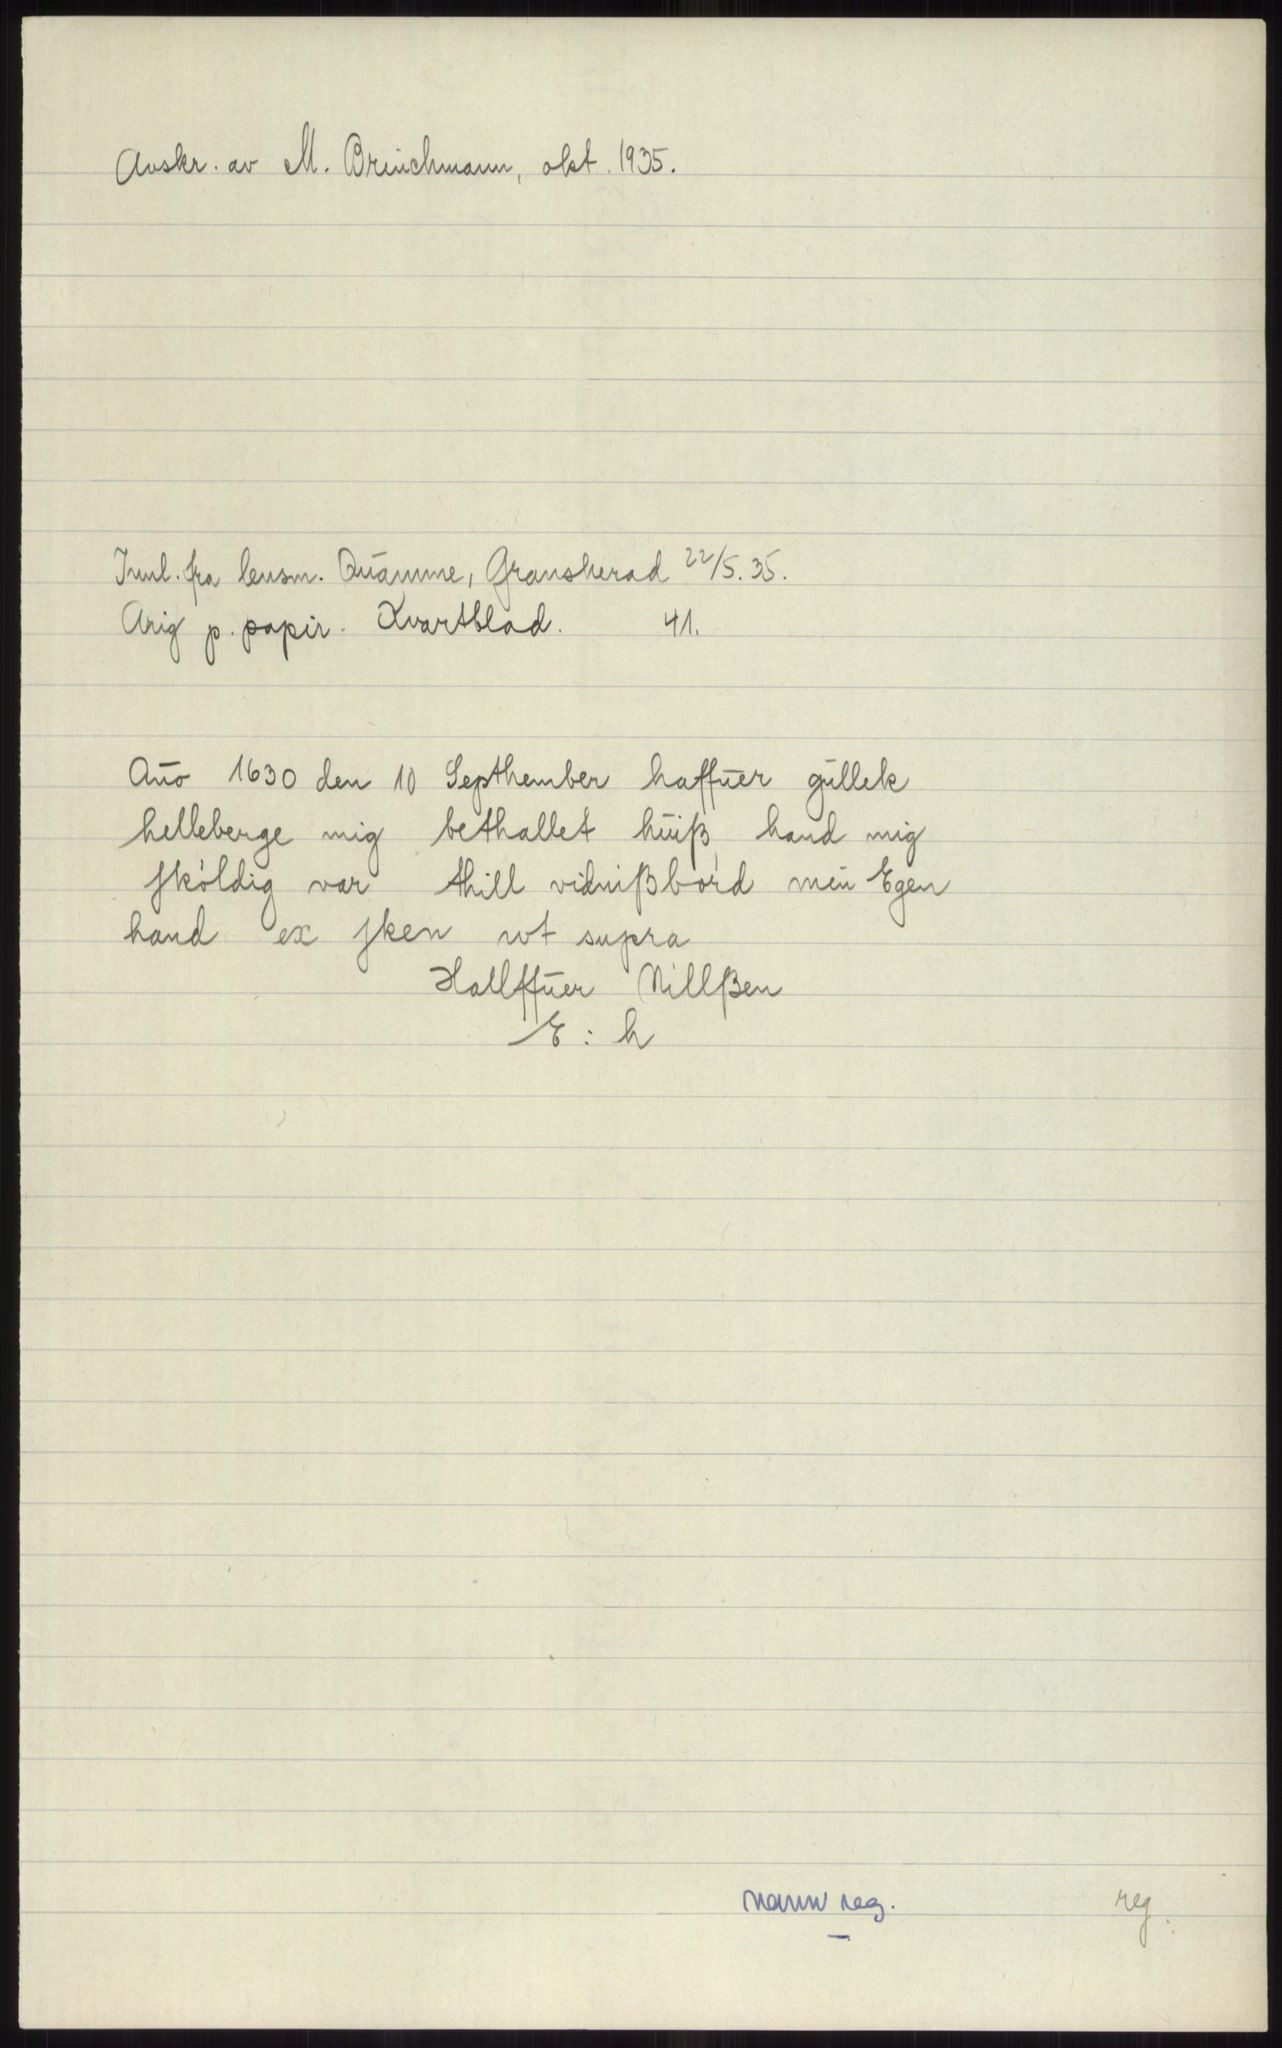 Avskr. av M. Brinchmann, okt. 1935.
Innl. fra lensm. Quamme, Gransherad 22/5. 35.
Orig p. papir. Kvartblad. 41.
Año 1630 den 10 Septhember haffuer gullek
helleberge mig bethallet huiß hand mig
skóldig var thill vidnißbórd min Egen
hand ex sken ut supra
Hallffuer Nillßen
E : h
navn reg.
reg.